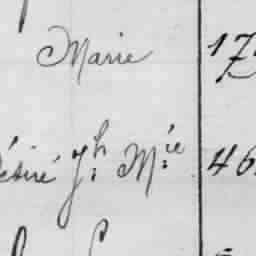 Marie 17
Désiré Jh. Mie. 46